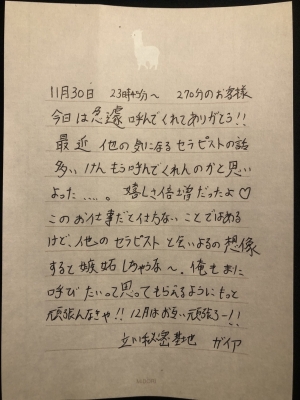 11月30日 23時45分〜 270分のお客様
今日は急遽呼んでくれてありがとう!!
最近 他の気になるセラピストの話
多いけん もう呼んでくれんのかと思い
よった....。嬉しさ倍増だったよ♡
このお仕事だと仕方ないことではある
けど、他のセラピストと会いよるの想像
すると嫉妬しちゃうな〜。俺もまた
呼びたいって思ってもらえるようにもっと
頑張んなきゃ!!12月はお互い頑張ろー!!
立川秘密基地 ガイア